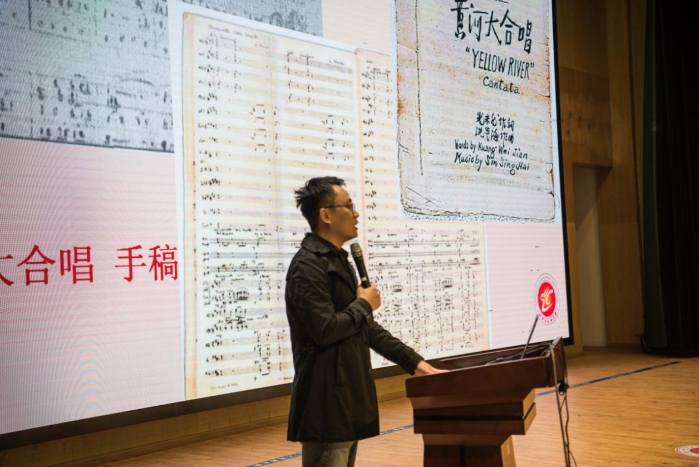 黄河大合唱
"YELLOW RIVER"
Cantata
光未然作詞
冼星海作曲
Words by Kuang Wei Jian
Music by Sin Sing Hai
大合唱 手稿